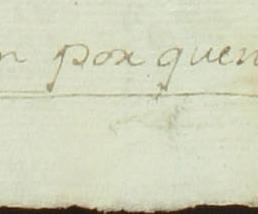 n por quen